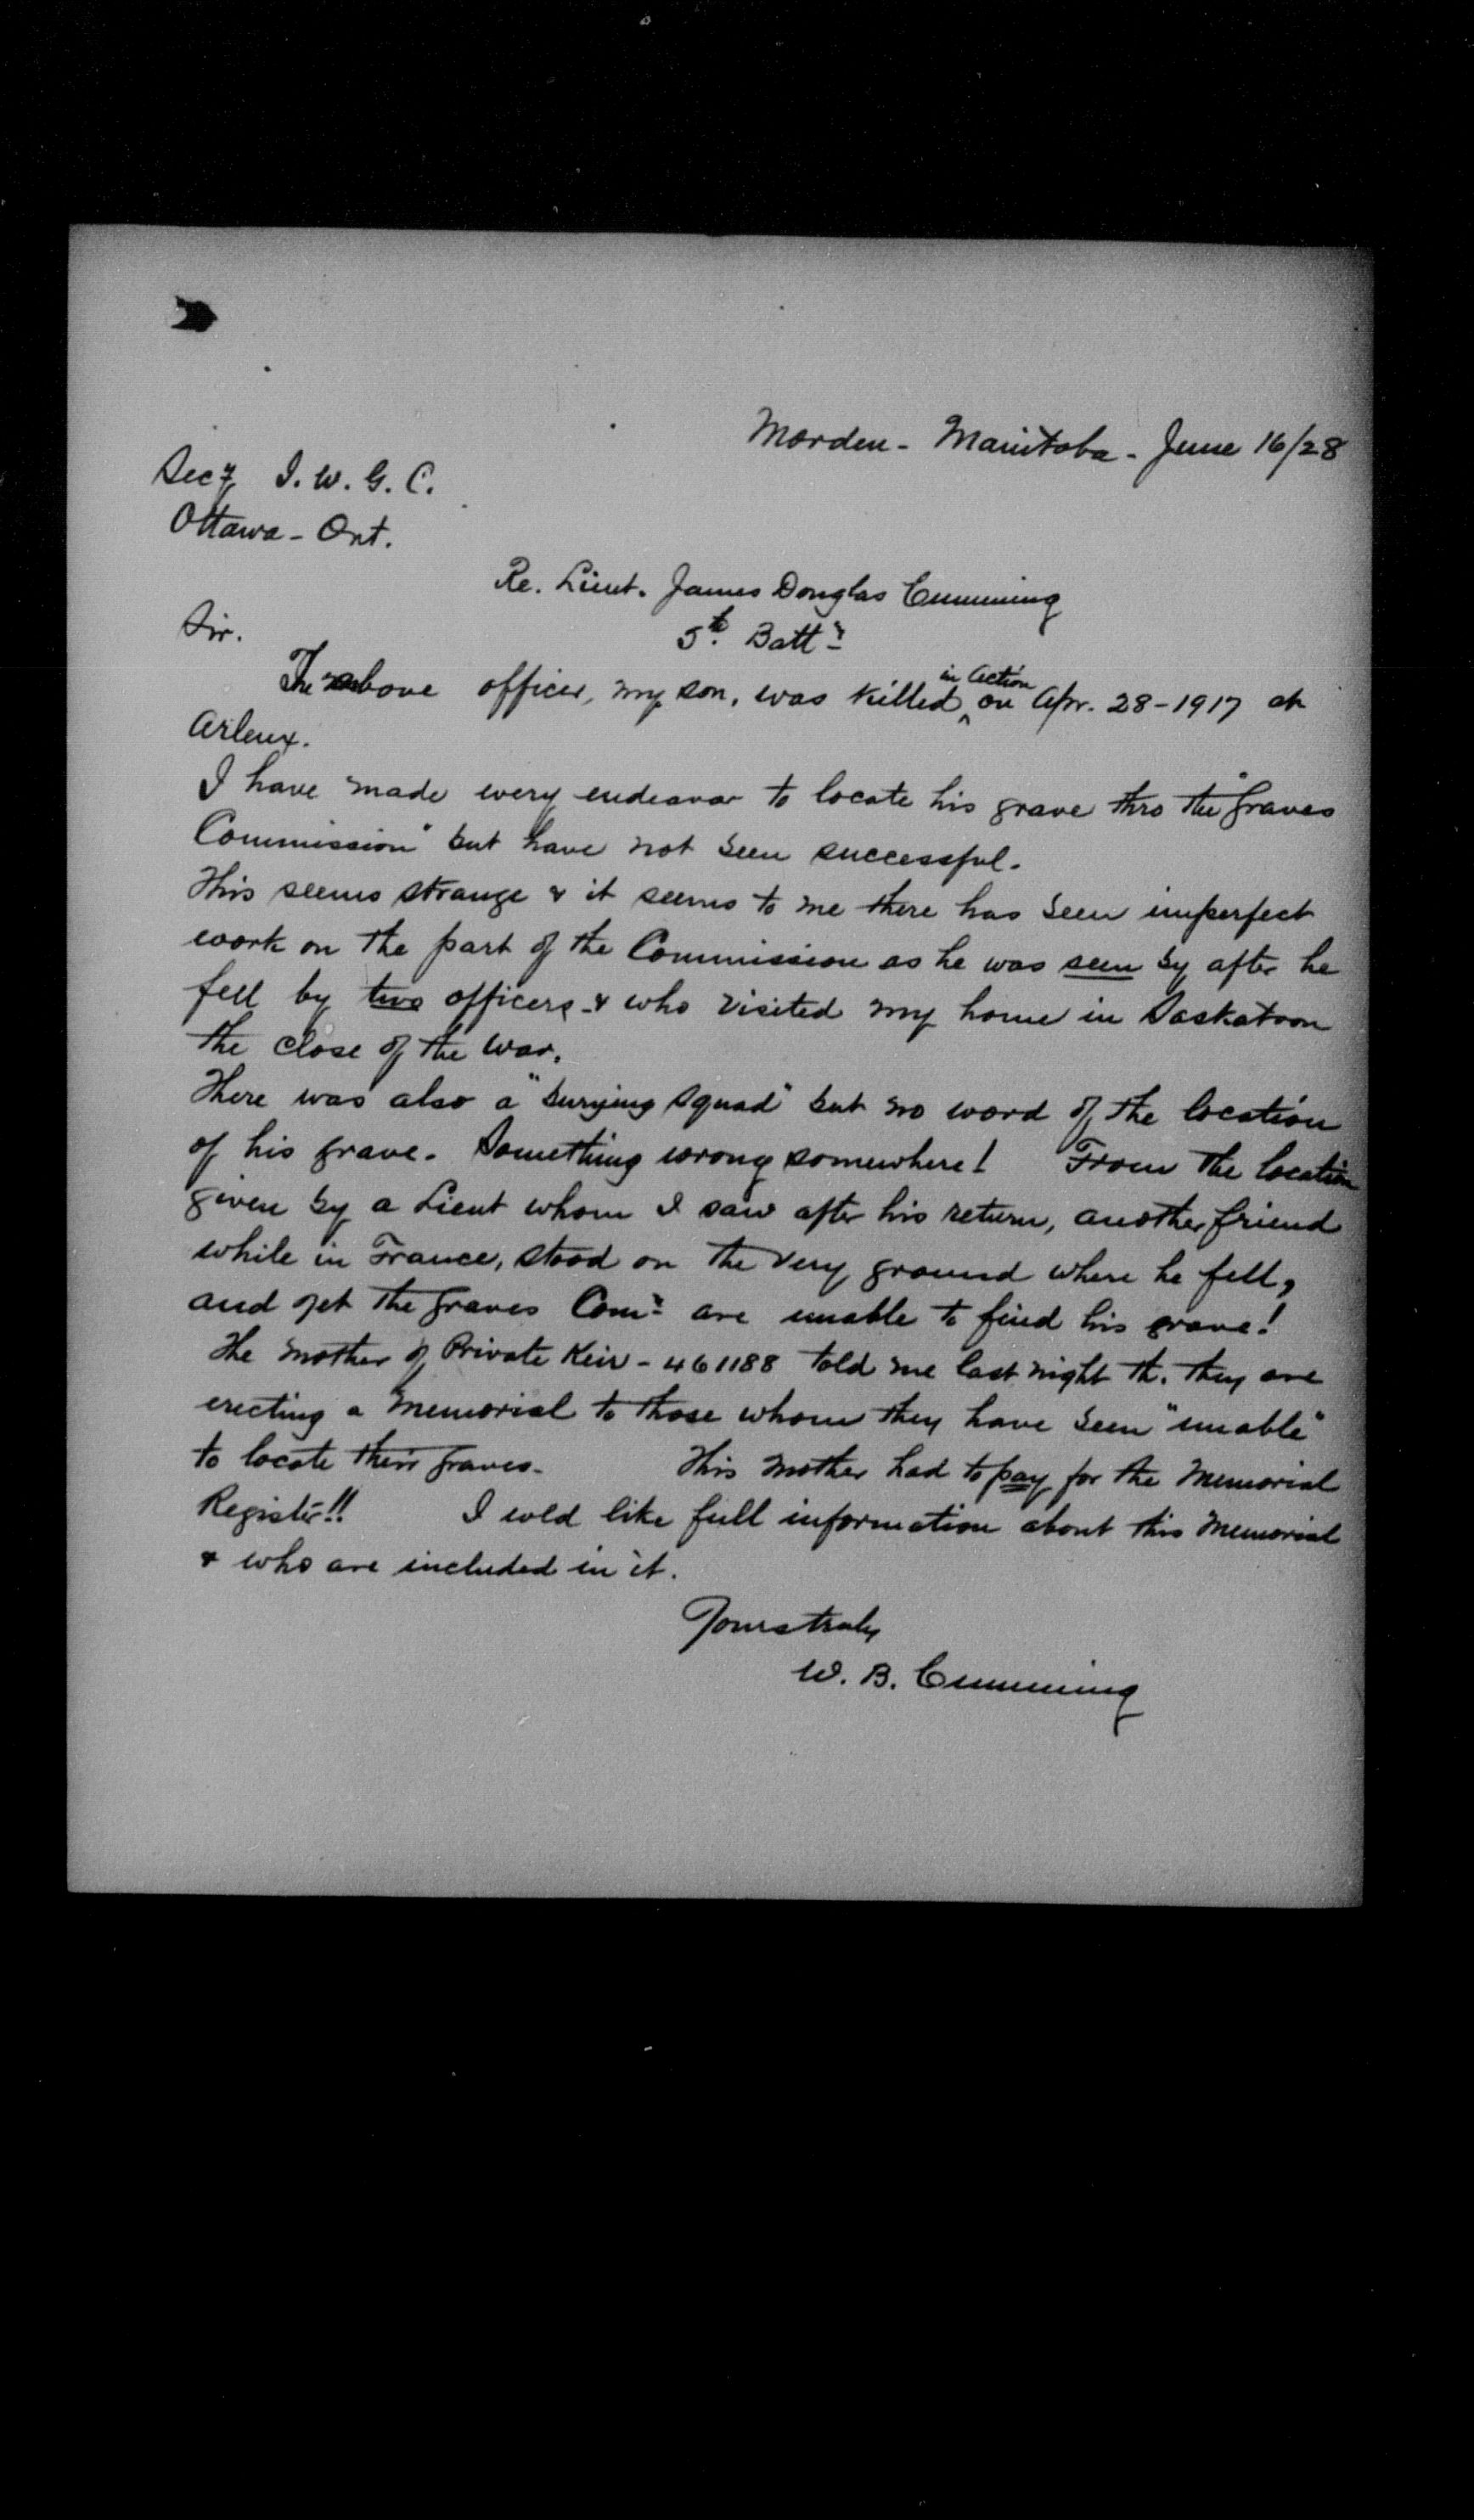 Morden - Manitoba - June 16/28
Secy I. W. G. C.
Ottawa - Ont.
Re. Lieut. James Douglas Cumming
5th Battn
Sir.
The above officer, my son, was killed in action on Apr. 28-1917 at
Arleux.
I have made every endeavor to locate his grave thro the "Graves
Commission" but have not been successful.
This seems strange & it seems to me there has been imperfect
work on the part of the Commission as he was seen by after he
fell by two officers - & who visited my home in Saskatoon
the close of the war.
There was also a "burying squad" but no word of the location
of his grave. Something wrong somewhere! From the location
given by a Lieut whom I saw after his return, another friend
while in France, stood on the very ground where he fell,
and yet the Graves Comn are unable to find his grave!
The mother of Private Keir - 461188 told me last night th. they are
erecting a memorial to those whom they have been "unable"
to locate their graves. This mother had to pay for the Memorial
Register!! I wld like full information about this memorial
& who are included in it.
Yours truly
W. B. Cumming